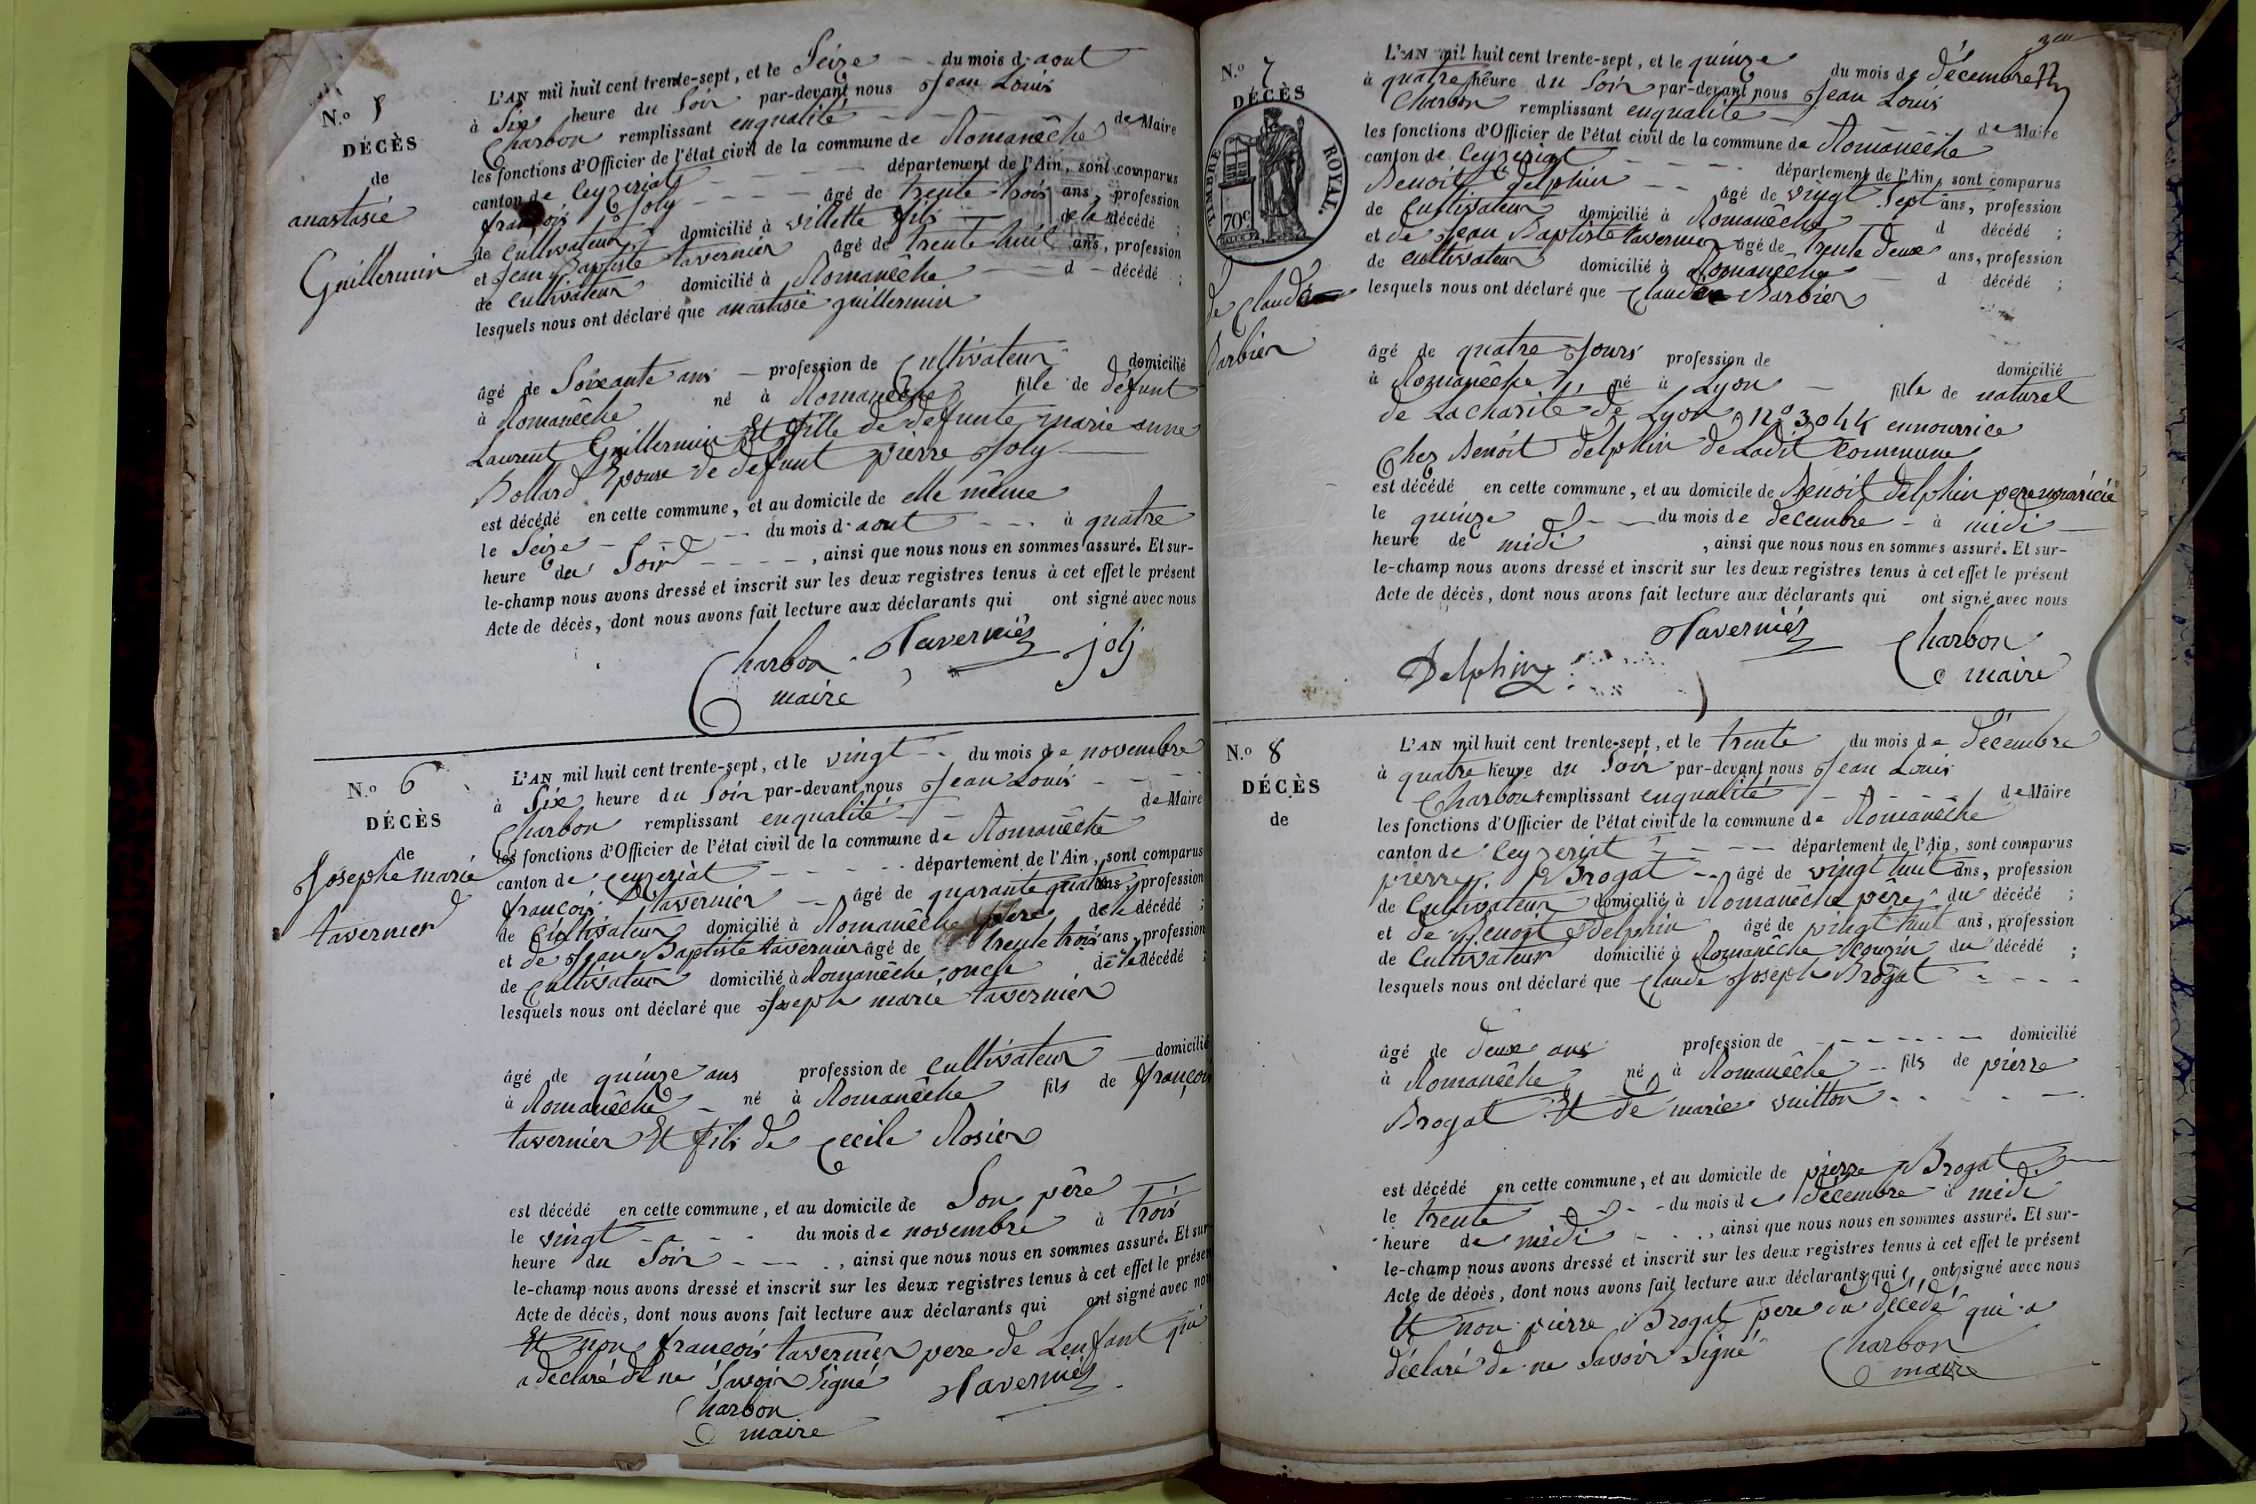 N.o 5
DÉCÈS
de
anastasie
Guillermin
L'AN mil huit cent trente-sept, et le Seize du mois d'aout
à Six heure du Soir par-devant nous Jean Louis
Charbon remplissant enqualité de Maire
les fonctions d'Officier de l'état civil de la commune de Romanêche
canton de Ceyzeriat département de l'Ain, sont comparus
françois Joly âgé de trente trois ans, profession
de Cultivateur domicilié à villette fils de la décédé ;
et Jean Baptiste tavernier âgé de trente huit ans, profession
de Cultivateur domicilié à Romanêche d décédé ;
lesquels nous ont déclaré que anastasie guillermin
âgé de Soixante ans profession de Cultivateur domicilié
à Romanêche né à Romanêche fille de défunt
Laurent Guillermin Et fille de defunte marie anne
Bollard Epouse de defunt pierre Joly
est décédé en cette commune, et au domicile de elle même
le Seize du mois d'aout à quatre
heure du Soir , ainsi que nous nous en sommes assuré. Et sur-
le-champ nous avons dressé et inscrit sur les deux registres tenus à cet effet le présent
Acte de décès, dont nous avons fait lecture aux déclarants qui ont signé avec nous
Charbon Tavernier joly
maire
N.o 6
DÉCÈS
de
Josephe marie
tavernier
L'AN mil huit cent trente-sept, et le vingt du mois de novembre
à Six heure du Soir par-devant nous Jean Louis
Charbon remplissant enqualité de Maire
les fonctions d'Officier de l'état civil de la commune de Romanêche
canton de Ceyzeriat département de l'Ain, sont comparus
françois tavernier âgé de quarante quatre ans, profession
de Cultivateur domicilié à Romanêche père de le décédé ;
et de Jean Baptiste tavernier âgé de trente trois ans, profession
de Cultivateur domicilié à Romanêche oncle de le décédé ;
lesquels nous ont déclaré que Joseph marie tavernier
âgé de quinze ans profession de Cultivateur domicilié
à Romanêche né à Romanêche fils de françois
tavernier Et fils de Cecile Rosier
est décédé en cette commune, et au domicile de Son père
le vingt du mois de novembre à trois
heure du Soir , ainsi que nous nous en sommes assuré. Et sur-
le-champ nous avons dressé et inscrit sur les deux registres tenus à cet effet le présent
Acte de décès, dont nous avons fait lecture aux déclarants qui ont signé avec nous
Et non françois tavernier pere de Lenfant qui
a déclaré de ne Savoir Signé Tavernier
Charbon
maire
N.o 7
DÉCÈS
TIMBRE ROYAL.
70c
de Claude
Barbier
L'AN mil huit cent trente-sept, et le quinze du mois de décembre
à quatre heure du Soir par-devant nous Jean Louis
Charbon remplissant enqualité de Maire
les fonctions d'Officier de l'état civil de la commune de Romanêche
canton de Ceyzeriat département de l'Ain, sont comparus
Benoit delphin âgé de vingt Sept ans, profession
de Cultivateur domicilié à Romanêche d décédé ;
et de Jean Baptiste tavernier âgé de trente deux ans, profession
de Cultivateur domicilié à Romanêche d décédé ;
lesquels nous ont déclaré que Claude Barbier
âgé de quatre Jours profession de domicilié
à Romanêche né à Lyon fille de naturel
de Lacharité de Lyon n° 3044 ennourrice
Chez Benoit delphin de Ladit Commune
est décédé en cette commune, et au domicile de Benoit delphin pere nourricié
le quinze du mois de decembre à midi
heure de midi , ainsi que nous nous en sommes assuré. Et sur-
le-champ nous avons dressé et inscrit sur les deux registres tenus à cet effet le présent
Acte de décès, dont nous avons fait lecture aux déclarants qui ont signé avec nous
Tavernier Charbon
Delphin maire
N.o 8
DÉCÈS
de
L'AN mil huit cent trente-sept, et le trente du mois de décembre
à quatre heure du Soir par-devant nous Jean Louis
Charbon remplissant enqualité de Maire
les fonctions d'Officier de l'état civil de la commune de Romanêche
canton de Ceyzeriat département de l'Ain, sont comparus
pierre Brogat âgé de vingt huit ans, profession
de Cultivateur domicilié à Romanêche père du décédé ;
et de Benoit Delphin âgé de vingt huit ans, profession
de Cultivateur domicilié à Romanêche Cousin du décédé ;
lesquels nous ont déclaré que Claude Joseph Brogat
âgé de deux ans profession de domicilié
à Romanêche né à Romanêche fils de pierre
Brogat Et de marie vuitton
est décédé en cette commune, et au domicile de pierre Brogat
le trente du mois de décembre à midi
heure de midi , ainsi que nous nous en sommes assuré. Et sur-
le-champ nous avons dressé et inscrit sur les deux registres tenus à cet effet le présent
Acte de décès, dont nous avons fait lecture aux déclarants qui ont signé avec nous
Et non pierre Brogat pere du décédé qui a
déclaré de ne Savoir Signé Charbon
maire